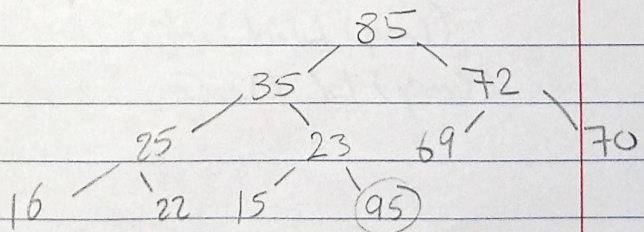 85
35 72
25 23 69 70
16 22 15 95